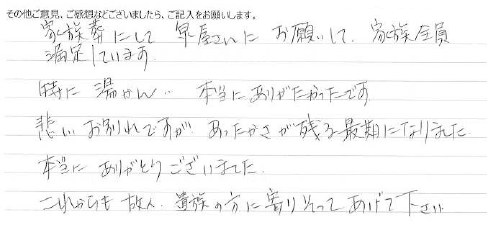 その他ご意見、ご感想などございましたら、ご記入をお願いします。
家族葬にして 早屋さんに お願いして、家族全員
満足しています
特に 湯かん‥ 本当にありがたかったです
悲しいお別れですが あったかさが残る最期になりました
本当に ありがとうございました
これからも 故人、遺族の方に寄りそって あげて下さい